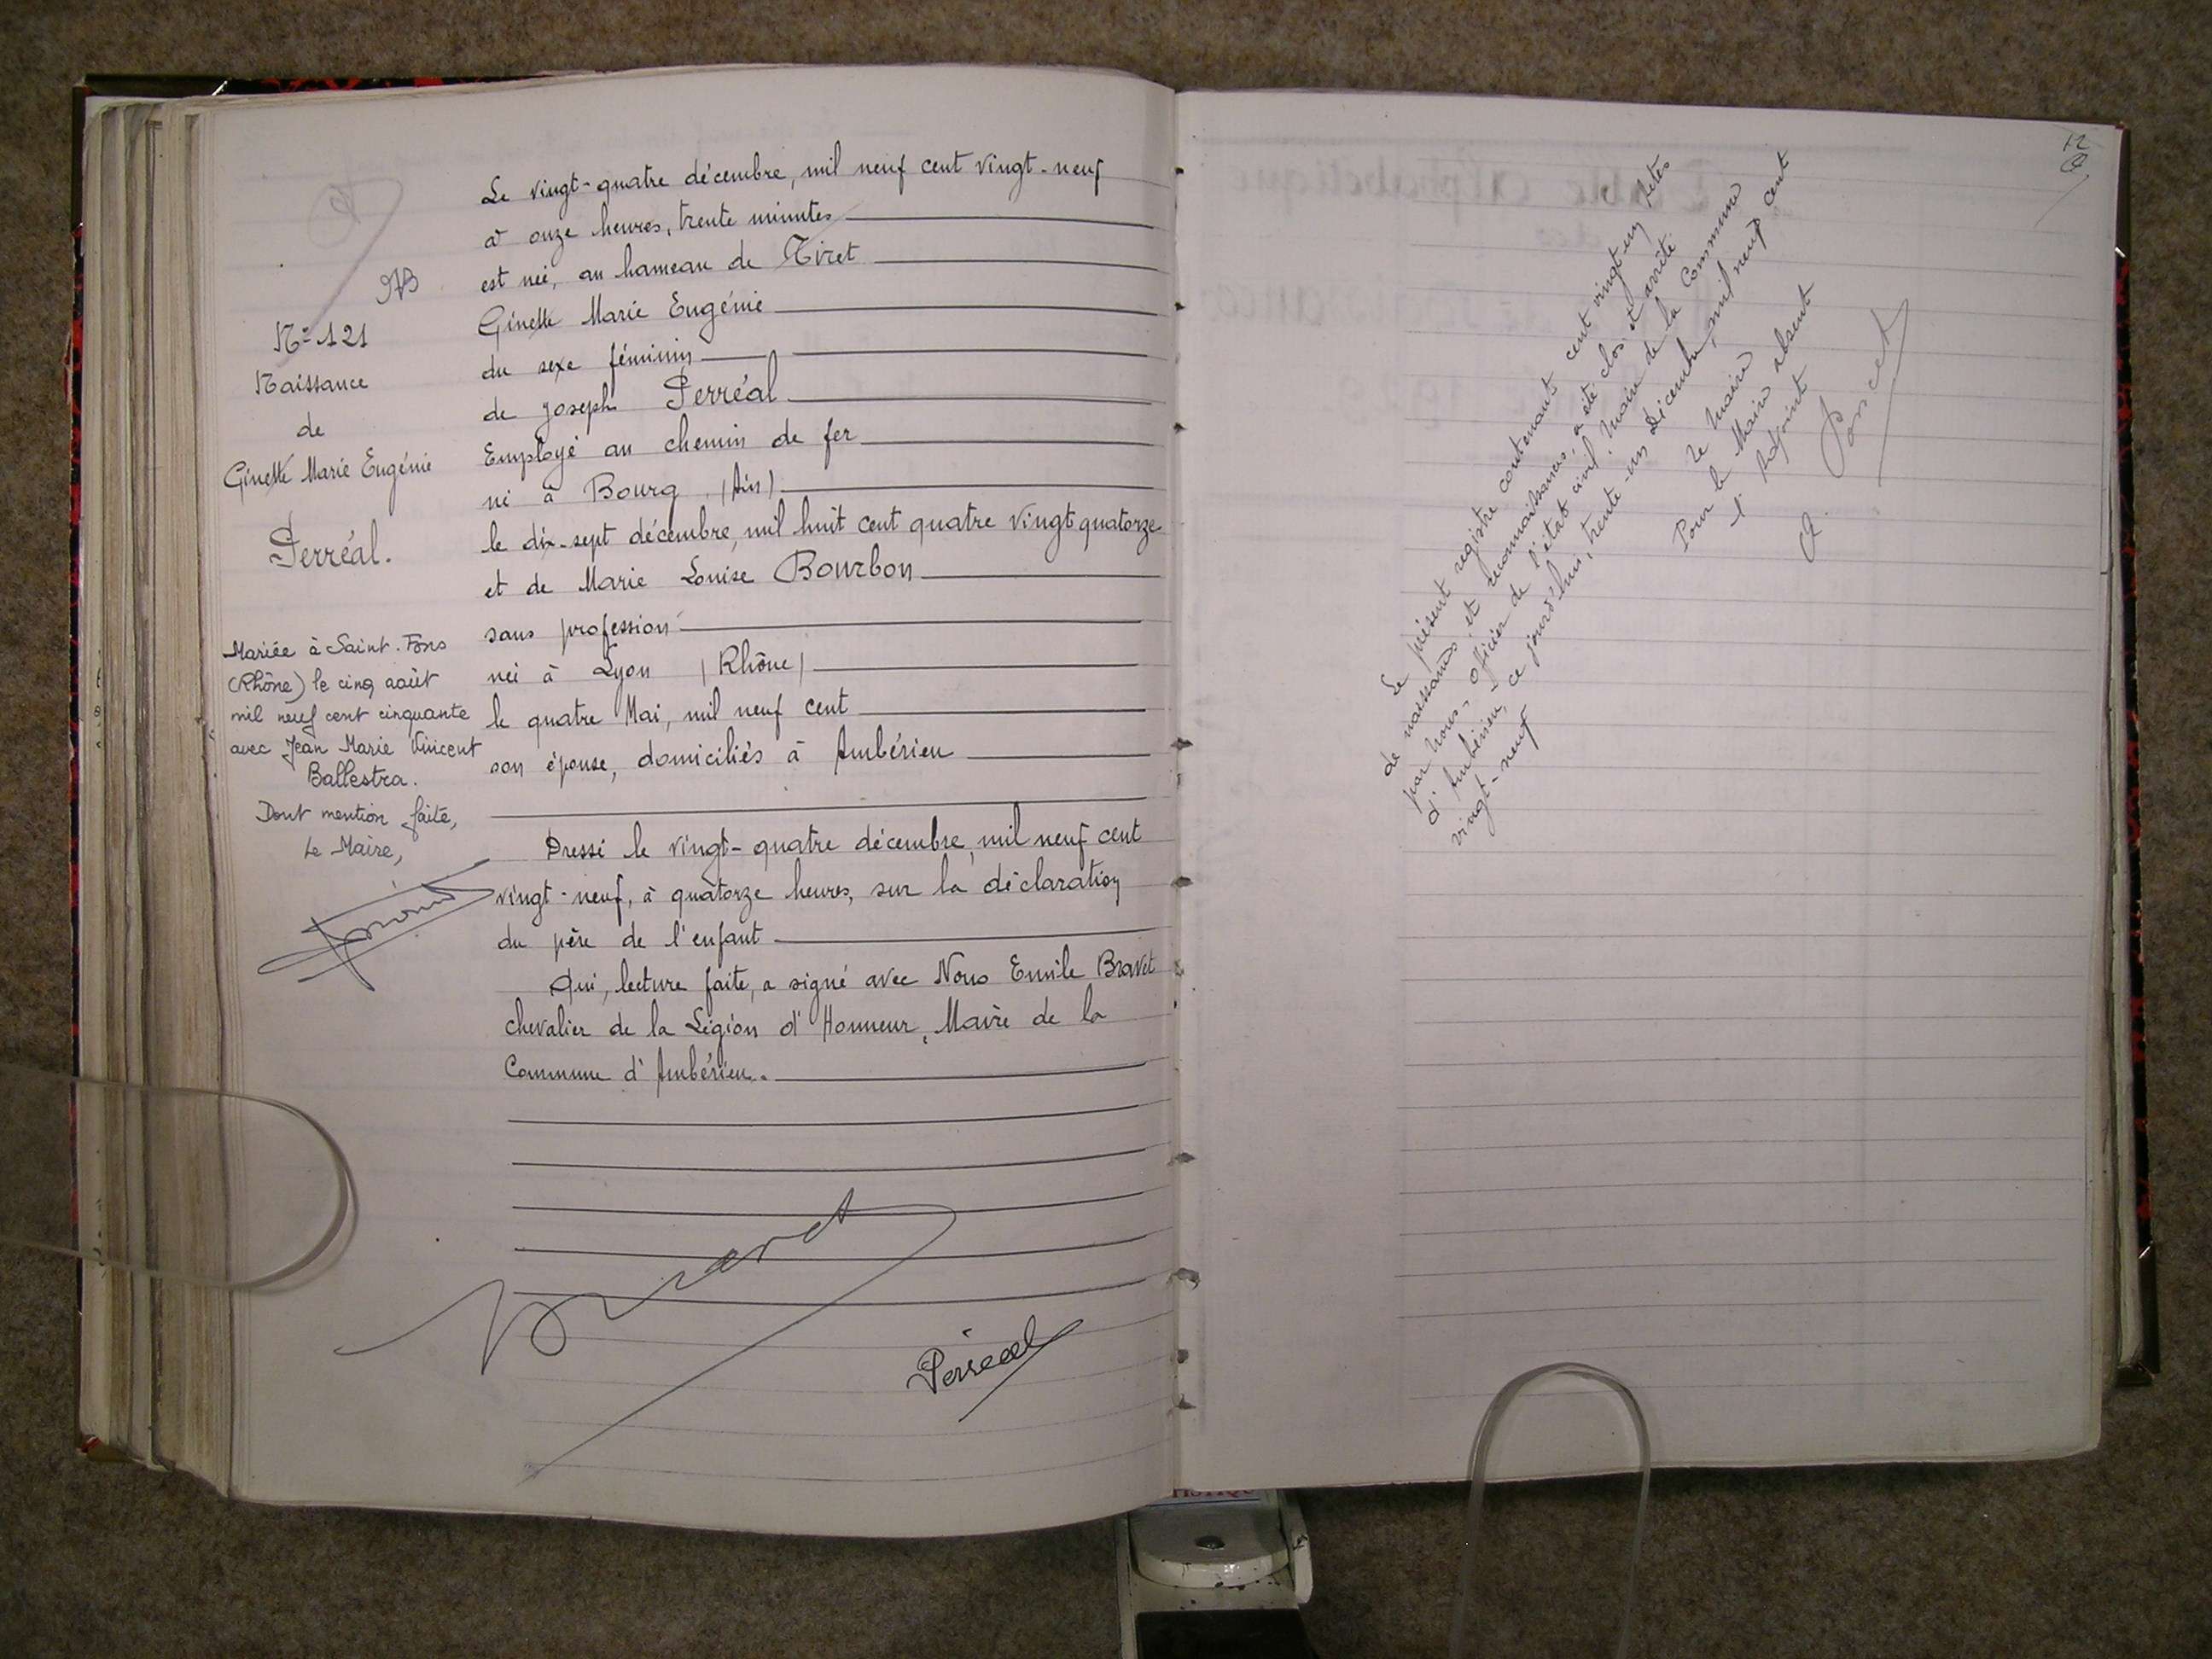 AB
N° 121
Naissance
de
Ginette Marie Eugénie
Perréal.
Mariée à Saint-Fons
(Rhône) le cinq août
mil neuf cent cinquante
avec Jean Marie Vincent
Ballestra.
Dont mention faite,
Le Maire,
Le vingt-quatre décembre, mil neuf cent vingt-neuf
à onze heures, trente minutes
est née, au hameau de Tiret
Ginette Marie Eugénie
du sexe féminin
de Joseph Perréal
Employé au chemin de fer
né à Bourg (Ain)
le dix-sept décembre, mil huit cent quatre vingt quatorze
et de Marie Louise Bourbon
sans profession
née à Lyon (Rhône)
le quatre Mai, mil neuf cent
son épouse, domiciliés à Ambérieu
Dressé le vingt-quatre décembre, mil neuf cent
vingt-neuf, à quatorze heures, sur la déclaration
du père de l'enfant
Qui, lecture faite, a signé avec Nous Emile Bravet
chevalier de la Légion d'Honneur, Maire de la
Commune d'Ambérieu.
Bravet
Perréal
12
Le présent registre contenant cent vingt-un actes
de naissances et reconnaissances, a été clos et arrêté
par nous, officier de l'état civil, Maire de la Commune
d'Ambérieu, ce jourd'hui, trente-un Décembre, mil neuf cent
vingt-neuf
Le Maire
Pour le Maire absent
l'Adjoint
Poncet